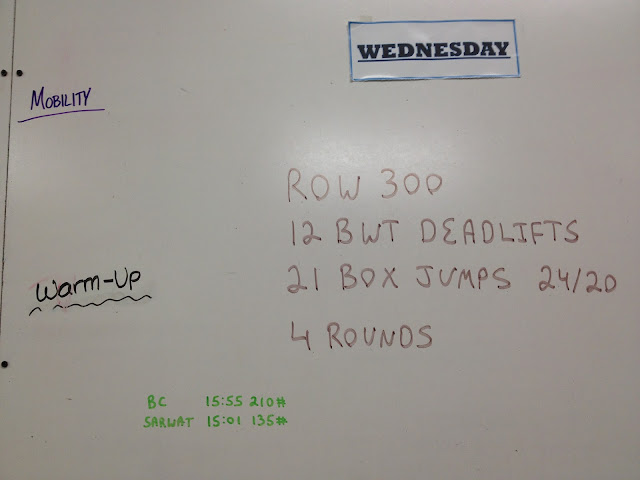 WEDNESDAY
MOBILITY
ROW 300
12 BWT DEADLIFTS
21 BOX JUMPS 24/20
Warm-Up
4 ROUNDS
BC 15:55 210#
SARWAT 15:01 135#